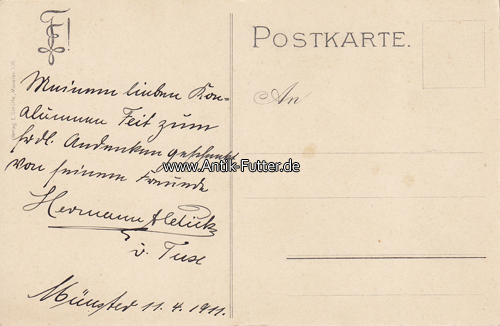 POSTKARTE.
An
Meinem lieben Kon-
alumnen Feit zum
frdl. Andenken geschenkt
von seinem Freunde
Hermann
v. Tux
Münster 11.4.1911.
www.Antik-Futter.de